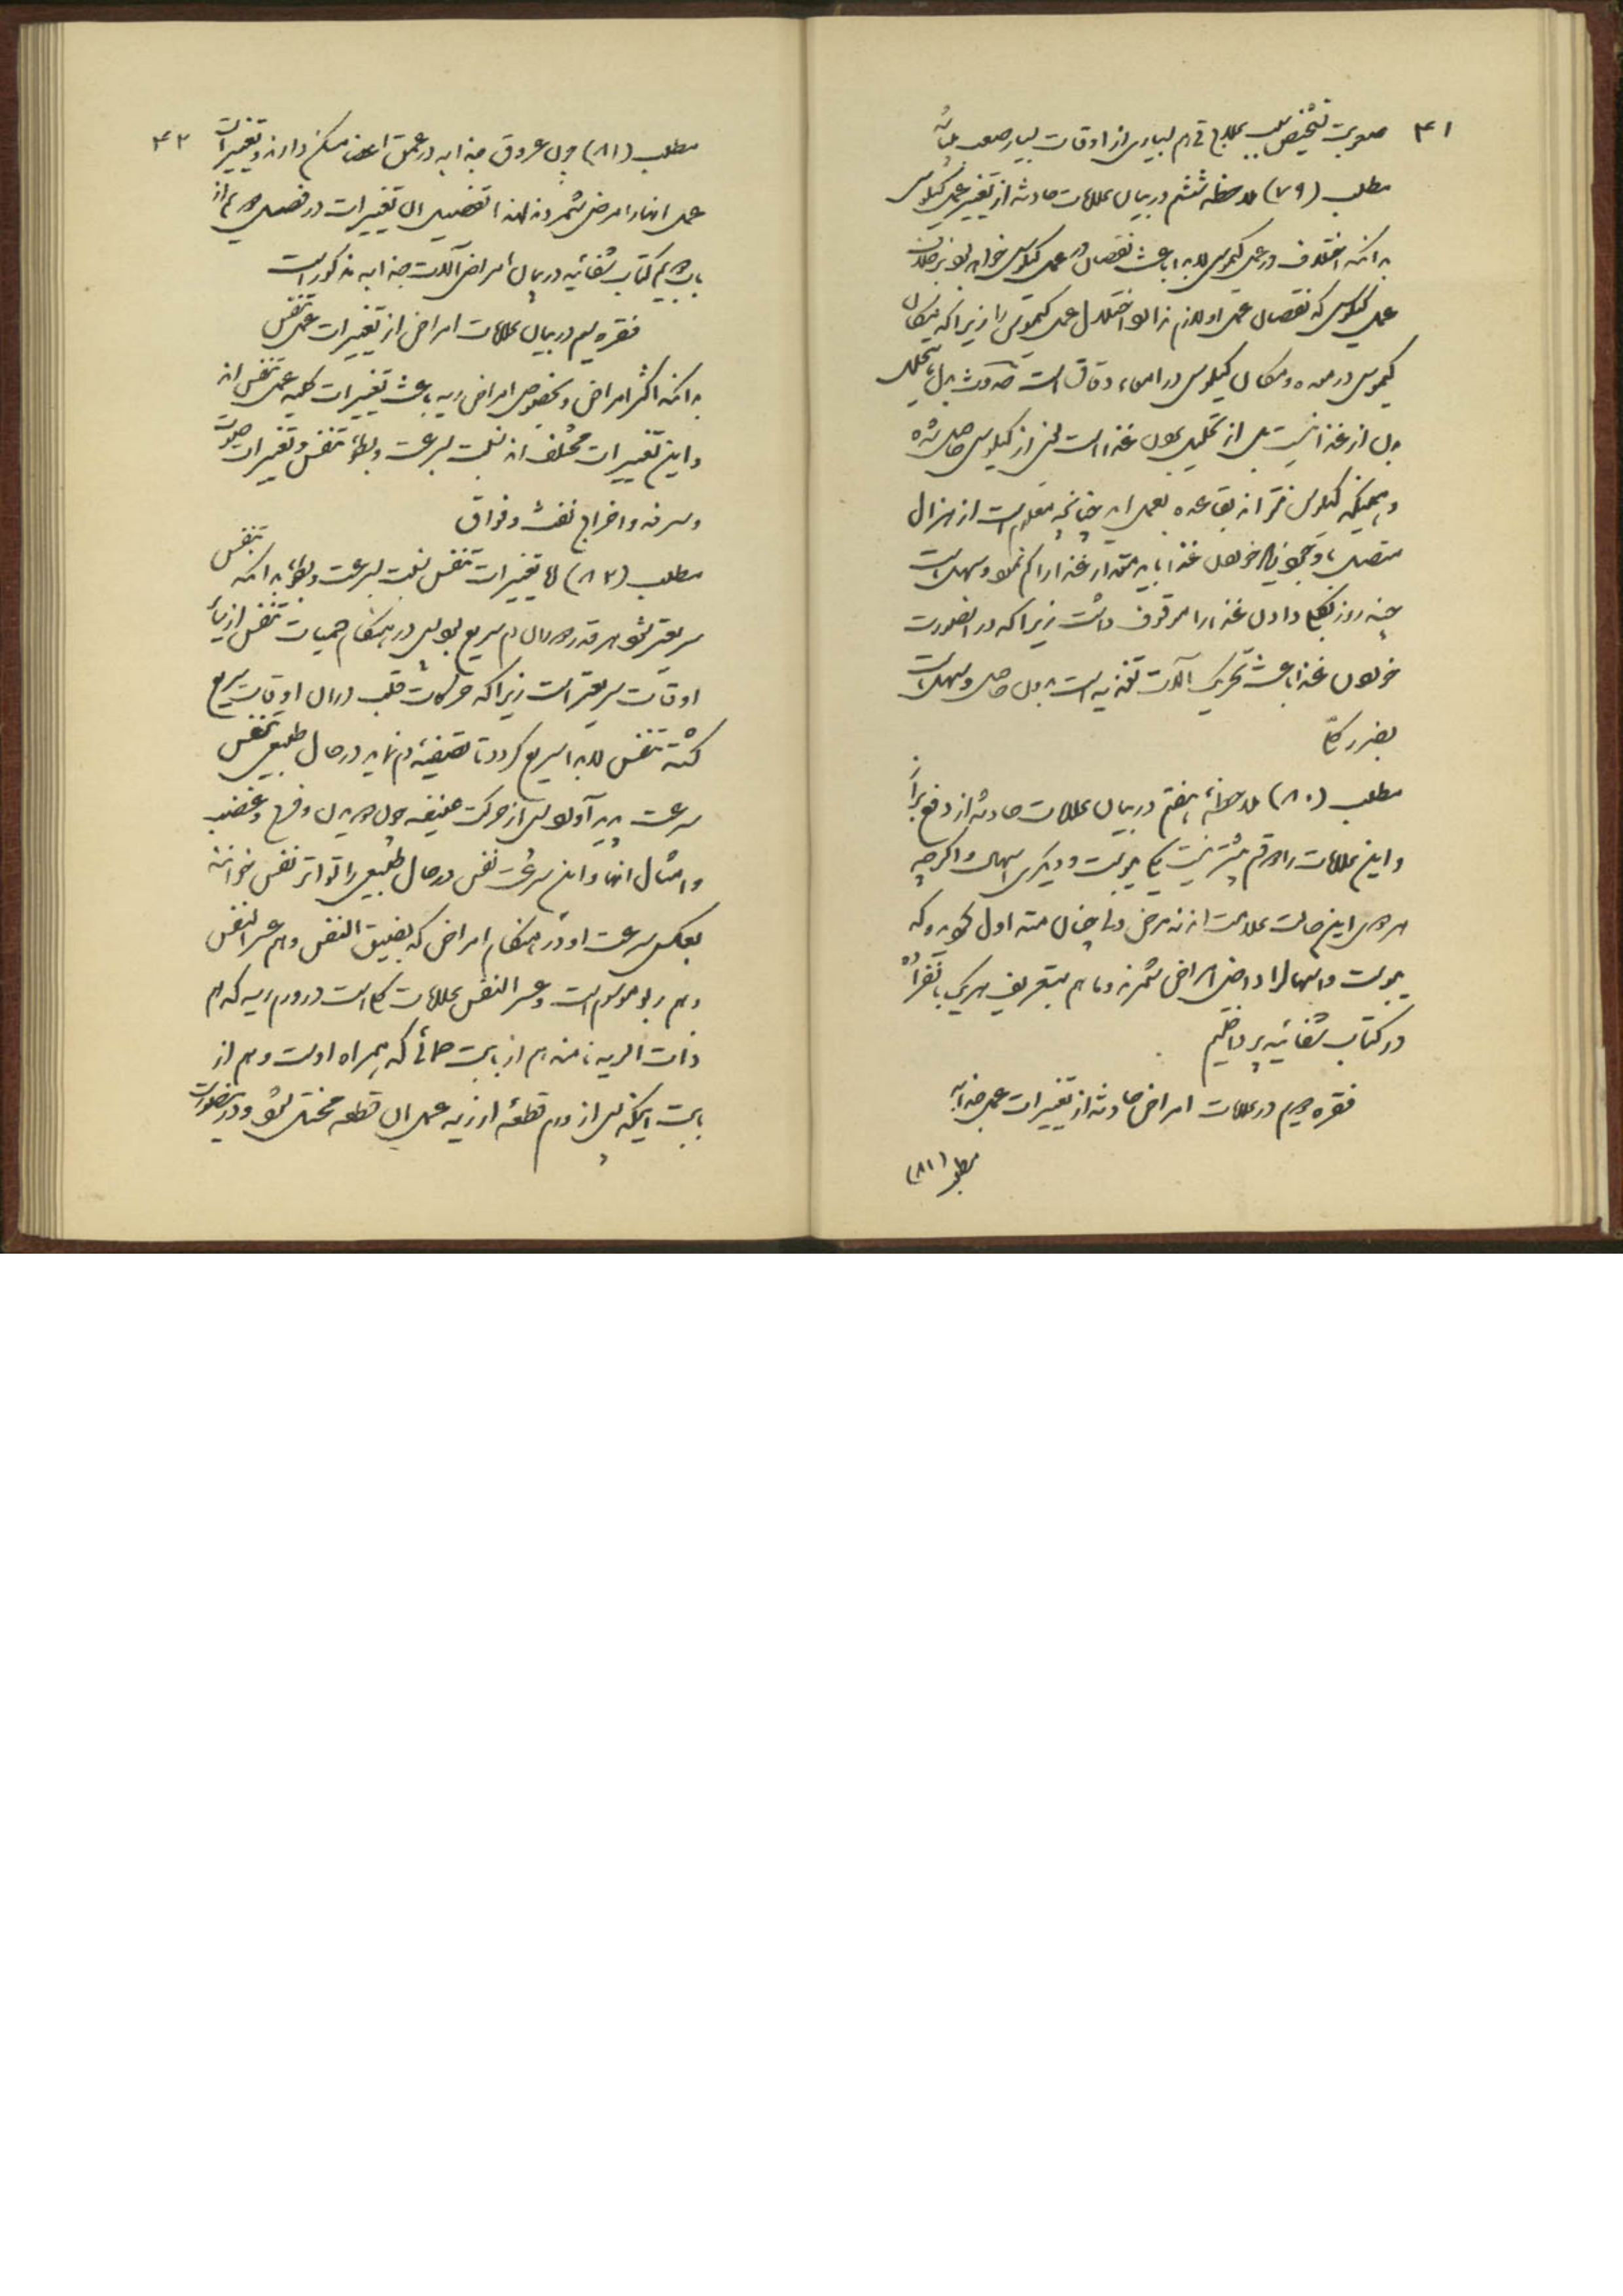 ۴۱
صعوبت تشخیص سبب بعلاج قی هم بسیاری از اوقات بسیار صعب میباشد
مطلب (۷۹) ملاحظه ششم در بیان علامات حادثه از تغییر عمل کیلوس
بدانکه اختلاف در عمل کیموس لابد باعث نقصان در عمل کیلوس خواهد بود بر خلاف
عمل کیلوس که نقصان عمل او لازم ندارد اختلال عمل کیموس را زیرا که مکان
کیموس در معده و مکان کیلوس در امعاء دقاق است حدوث بدل ما یتحلل
بدن از غذا نیست بل از تحلیل بدن غذا است یعنی از کیلوس حاصل شده
و همینکه کیلوس نتواند بقاعده بعمل اید چنانچه معلوم است از هزال
متصل با وجود زیاد خوردن غذا باید مقدار غذا را کم نمود و سهل است
چند روز بکلی دادن غذا را موقوف داشت زیرا که در اینصورت
خوردن غذا باعث تحریک آلات تغذیه است بدون حاصل و سهل است
بضرر کلی
مطلب (۸۰) ملاحظه هفتم در بیان علامات حادثه از دفع براز
و این علامات را دو قسم بیشتر نیست یکی یبوست و دیگری اسهال و اگرچه
هر دوی این حالت علامت‌اند نه مرض ولی چنان متداول گردیده که
یبوست و اسهال را داخل امراض شمرند و ما هم بتعریف هر یک بانفراده
در کتاب شفائیه پرداختیم
فقره دویم در علامات امراض حادثه از تغییرات عمل جذابه
مطلب (۸۱)
۴۲
مطلب (۸۱) چون عروق جذابه در عمق اعضا مسکن دارند و تغییرات
عمل انها را مرض شمرده‌اند لهذا تفصیل ان تغییرات در فصل دویم از
باب دویم کتاب شفائیه در بیان امراض آلات جذابه مذکور است
فقره سیم در بیان علامات امراض از تغییرات عمل تنفس
بدانکه اکثر امراض و بخصوص امراض ریه باعث تغییرات کلیه عمل تنفس‌اند
و این تغییرات مختلف‌اند نسبت بسرعت و بطوء تنفس و تغییرات صوت
و سرفه و اخراج نفث و فواق
مطلب (۸۲) اما تغییرات تنفس نسبت بسرعت و بطوء بدانکه تنفس
سریعتر شود هر قدر دوران دم سریع بود پس در هنگام حمیات تنفس از سایر
اوقات سریعتر است زیرا که حرکات قلب در ان اوقات سریع
گشته تنفس لابد سریع گردد تا تصفیه دم نماید در حال طبیعی تنفس
سرعت پدید آورد پس از حرکت عنیفه چون دویدن و فرح و غضب
و امثال انها و این سرعت نفس در حال طبیعی را تواتر نفس خوانند
بعکس سرعت او در هنگام امراض که بضیق النفس و هم عسر النفس
و هم ربو موسوم است و عسر النفس علامات کلی است در ورم ریه که هم
ذات الریه نامند هم از بابت حمائی که همراه اوست و هم از
بابت اینکه پس از ورم قطعهٔ از ریه عمل ان قطعه مختل شود و در اینصورت